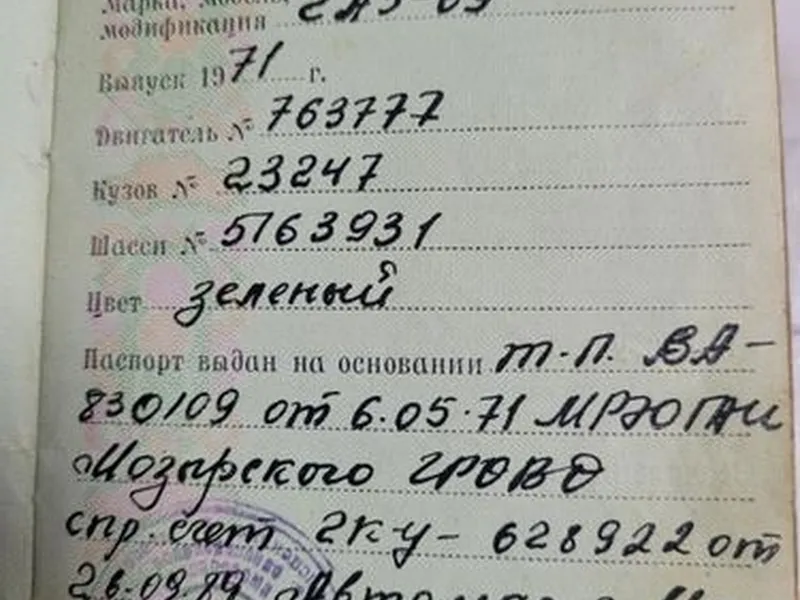 Марка, модель,
модификация ГАЗ-69
Выпуск 1971 г.
Двигатель № 763777
Кузов № 23247
Шасси № 5163931
Цвет зеленый
Паспорт выдан на основании т.п. ВА-
830109 от 6.05.71 МРЭО ГАИ
Мозырского ГРОВД
спр. счет ГКУ- 628922 от
26.09.89